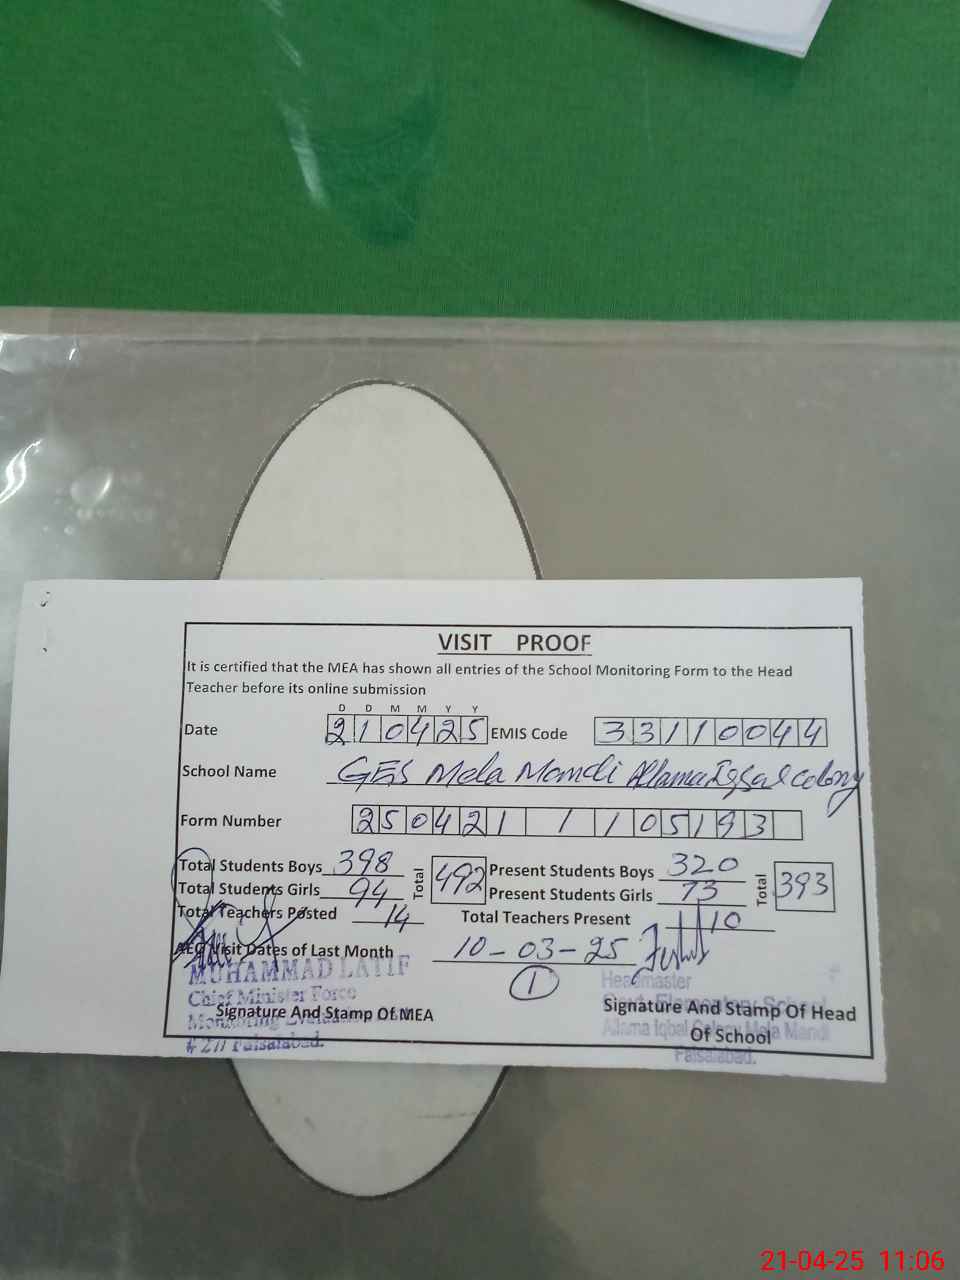 VISIT PROOF
It is certified that the MEA has shown all entries of the School Monitoring Form to the Head
Teacher before its online submission
D D M M Y Y
Date 210425 EMIS Code 33110044
School Name GES Mela Mandi Allama Iqbal colony
Form Number 250421 1 105193
Total Students Boys 398 Total 492 Present Students Boys 320 Total 393
Total Students Girls 94 Present Students Girls 73
Total Teachers Posted 14 Total Teachers Present 10
AEO Visit Dates of Last Month 10-03-25
1
MUHAMMAD LATIF
Chief Minister Force
Monitoring
Faisalabad.
Signature And Stamp Of MEA
Headmaster
Govt. Elementary School
Allama Iqbal Colony Mela Mandi
Faisalabad.
Signature And Stamp Of Head
Of School
21-04-25 11:06